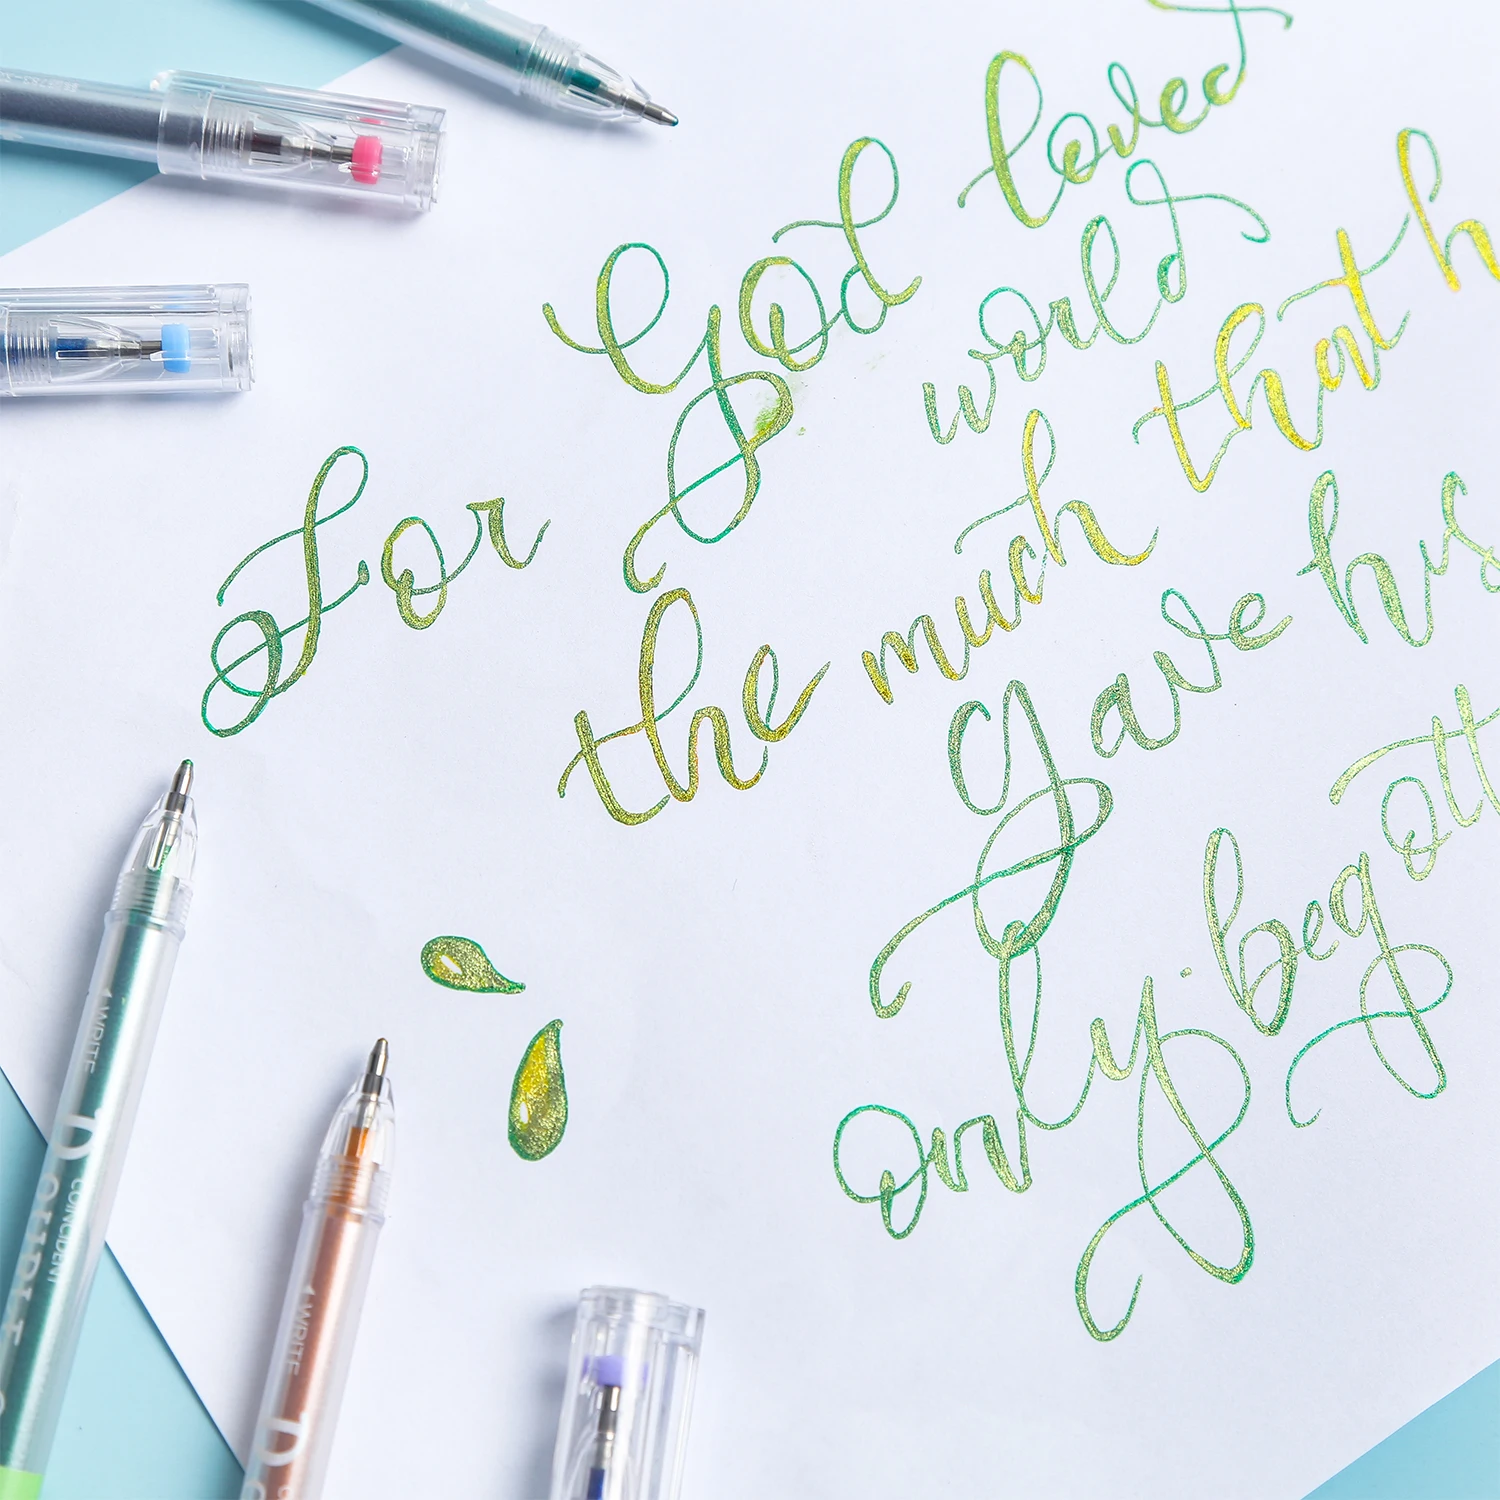 For God loved
the world
much that h
gave his
only begott
WRITE
DOUBLE
COINCIDENT
WRITE
D